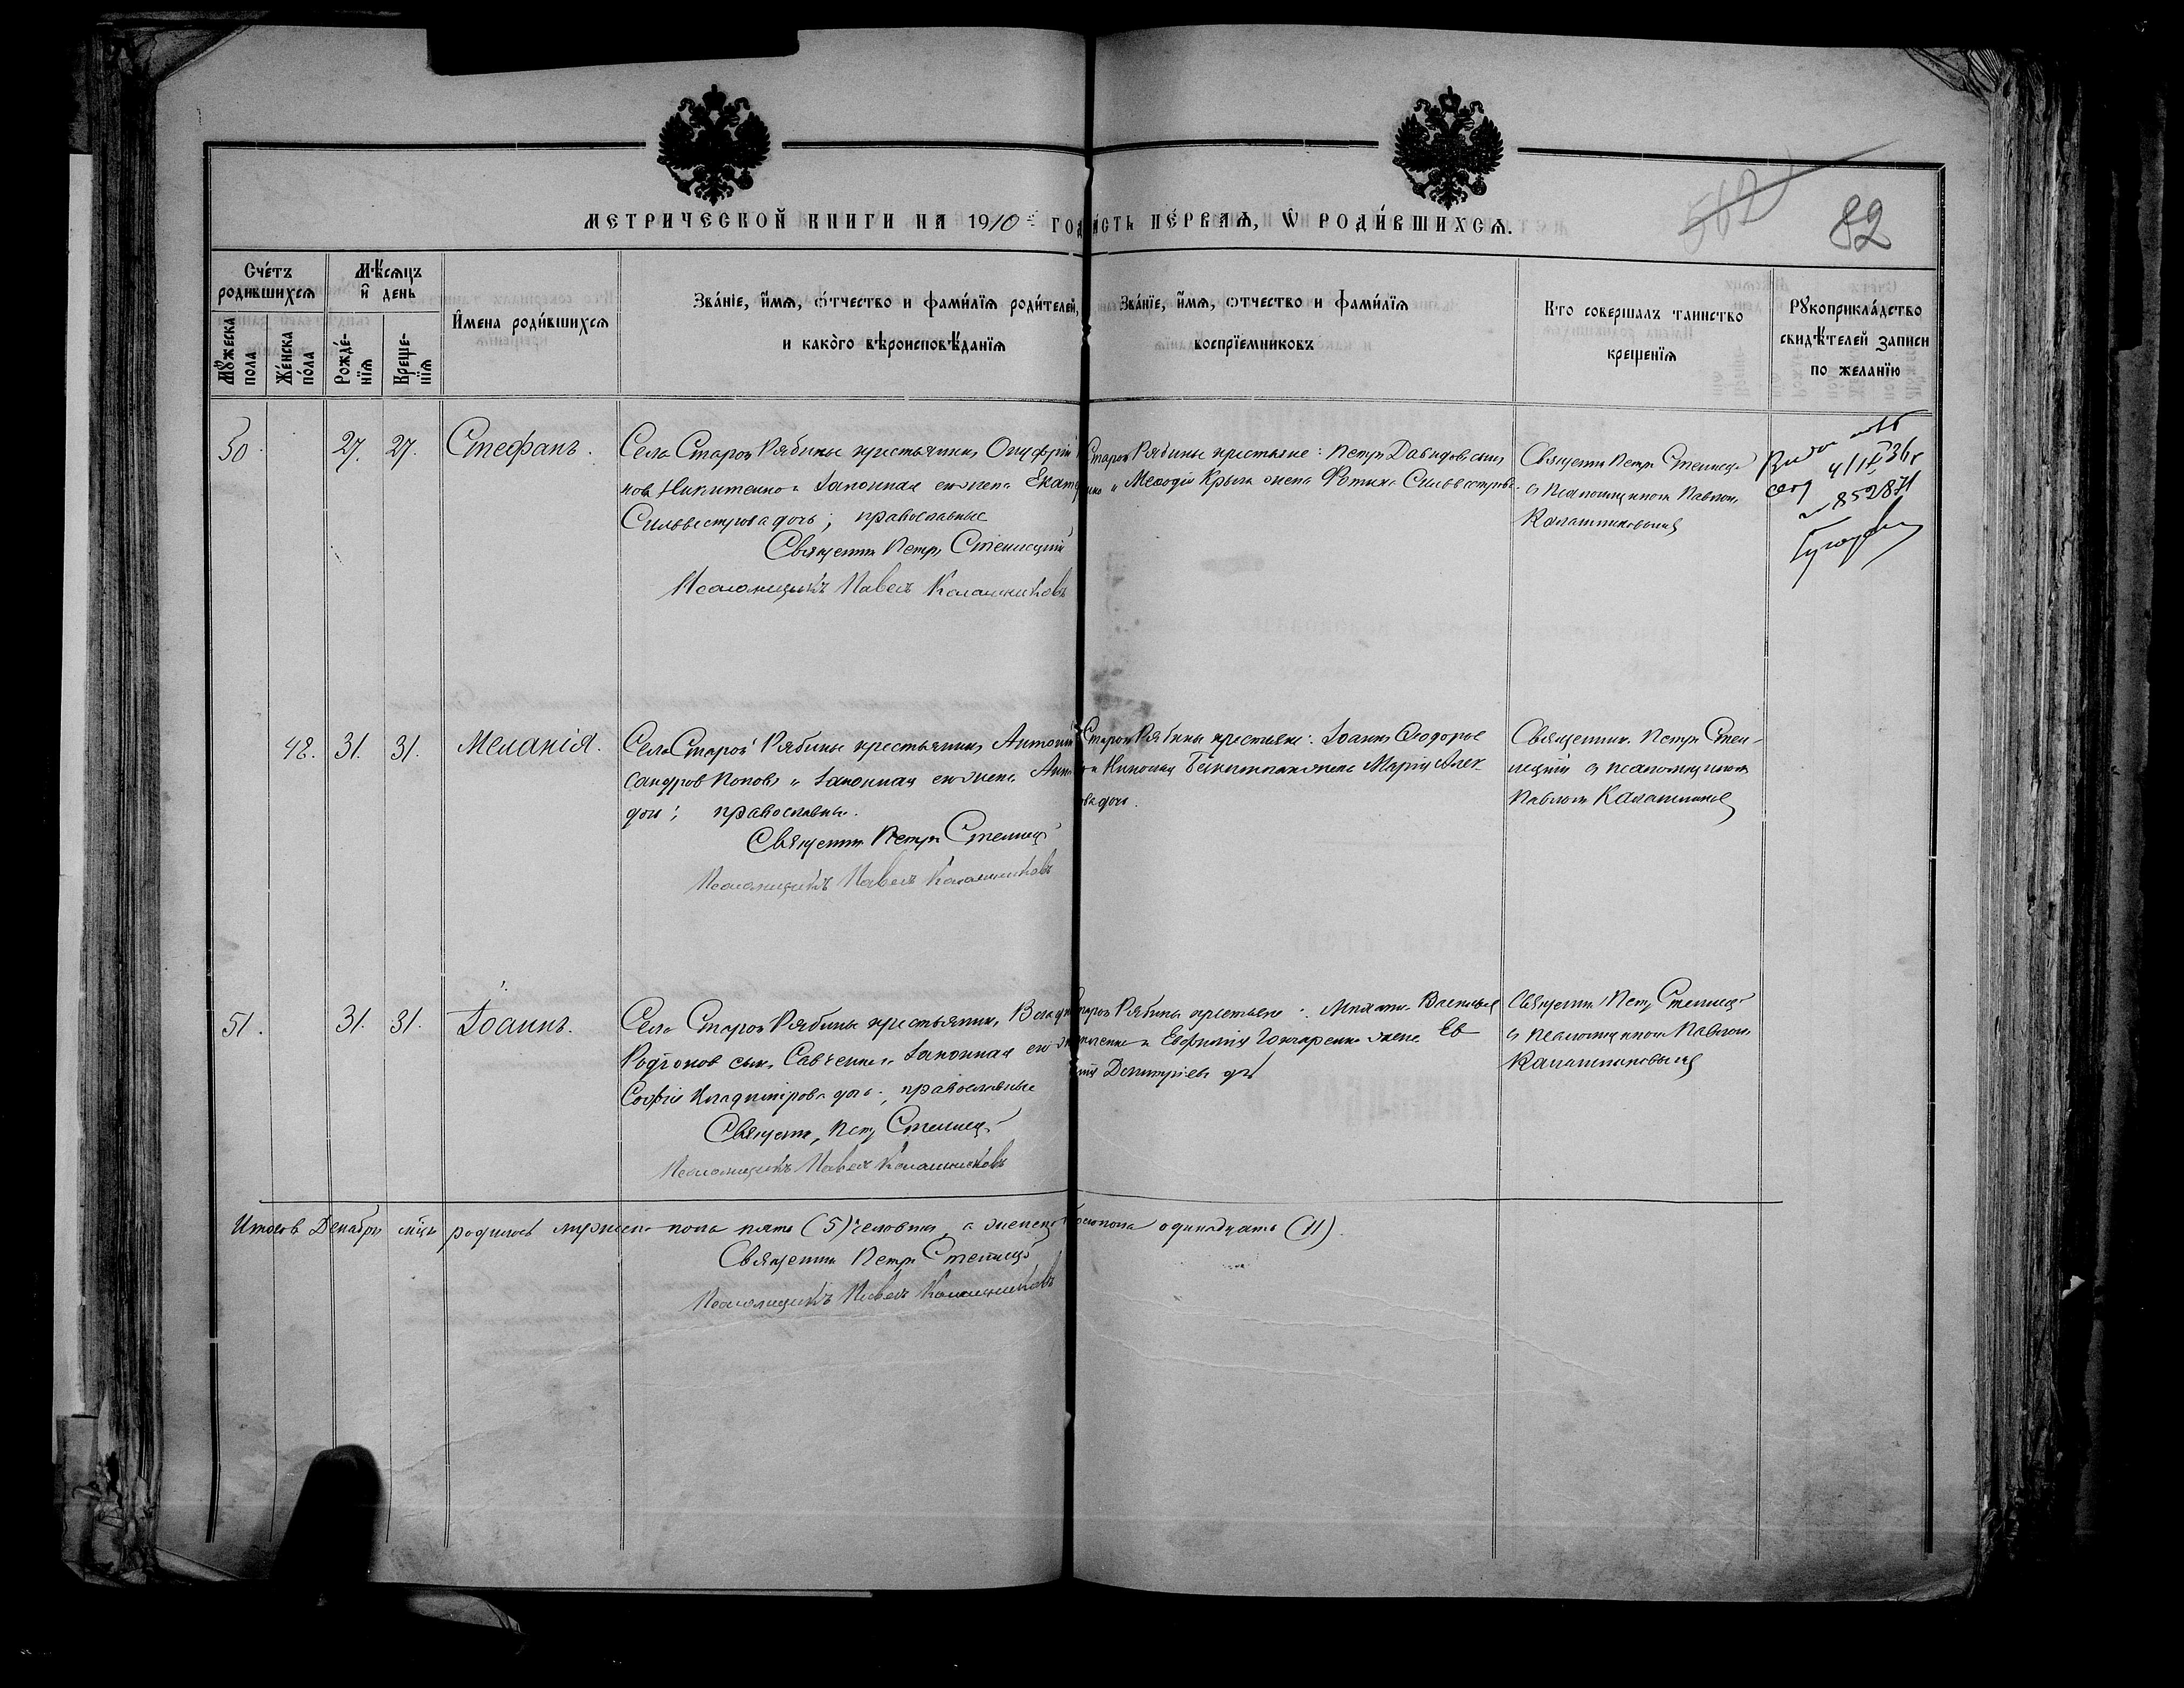 562
82
МЕТРИЧЕСКОЙ КНИГИ НА 1910 ГОД
ЧАСТЬ ПЕ́РВАѦ, Ѡ РОДИ́ВШИХСѦ.
Счетъ родившихсѧ
Мѣсѧцъ и день
Имена роди́вшихсѧ
Зва́нїе, и́мѧ, ѻ́тчество и фами́лїѧ роди́телей,
и како́го вѣроисповѣ́данїѧ
Зва́нїе, и́мѧ, ѻтчество и фами́лїѧ
воспрїемниковъ
Кто совершалъ таинство
крещенїѧ
Рꙋкоприкла́дство
свидѣ́телей записи
по желанїю
Мꙋжеска пола
Же́нска по́ла
Рожде́нїѧ
Крещенїѧ
50. 27. 27. Стефанъ.
Села Старой Рябины крестьянинъ Онуфрій
Никитенко и законная его жена Екат
Сильвестрова дочь; православные
Священникъ Петръ
Псаломщикъ Павелъ Калашниковъ
Старой Рябины крестьяне: Петръ Давидовъ сынъ
и Мефодія жена Фотина Сильвестрова
Священникъ Петръ
съ псаломщикомъ Павломъ
Калашниковымъ
852871
48. 31. 31. Меланія.
Села Старой Рябины крестьянинъ Антоній
сандровъ Поповъ и законная его жена Анна
дочь; православные.
Священникъ Петръ
Псаломщикъ Павелъ Калашниковъ
Старой Рябины крестьяне: Іоаннъ Ѳеодоровъ
Николая жена Марія Алек
ова дочь.
Священникъ Петръ
съ псаломщикомъ
Павломъ Калашниковымъ
51. 31. 31. Іоаннъ.
Села Старой Рябины крестьянинъ Влади
Родіоновъ сынъ Савченко и законная его
Софія Владимірова дочь; православные
Священникъ Петръ
Псаломщикъ Павелъ Калашниковъ
Старой Рябины крестьяне: Васильевъ
и Евфимія Гончаренко жена Ев
Димитріева дочь
Священникъ Петръ
съ псаломщикомъ Павломъ
Калашниковымъ
Итого въ Декабрѣ мѣсяцѣ родилось мужеска пола пять (5) человѣкъ, а женскаго пола одинадцать (11).
Священникъ Петръ
Псаломщикъ Павелъ Калашниковъ